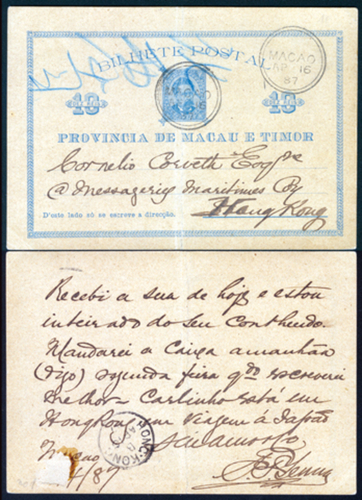 BILHETE POSTAL
MACAO
AP 16
87
10 10
PROVINCIA DE MACAU E TIMOR
Cornelio Esqre
@ Messageries Maritimes Coy
Hong Kong
D'este lado só se escreve a direcção.
Recebi a sua de hoje e estou
inteirado do seu contheudo.
Mandarei a Caixa amanhã
(digo) segunda feira qdo escreverei
melhor. Carlinho está em
HongKong em viagem á Japão
HONG KONG
Macao
/87